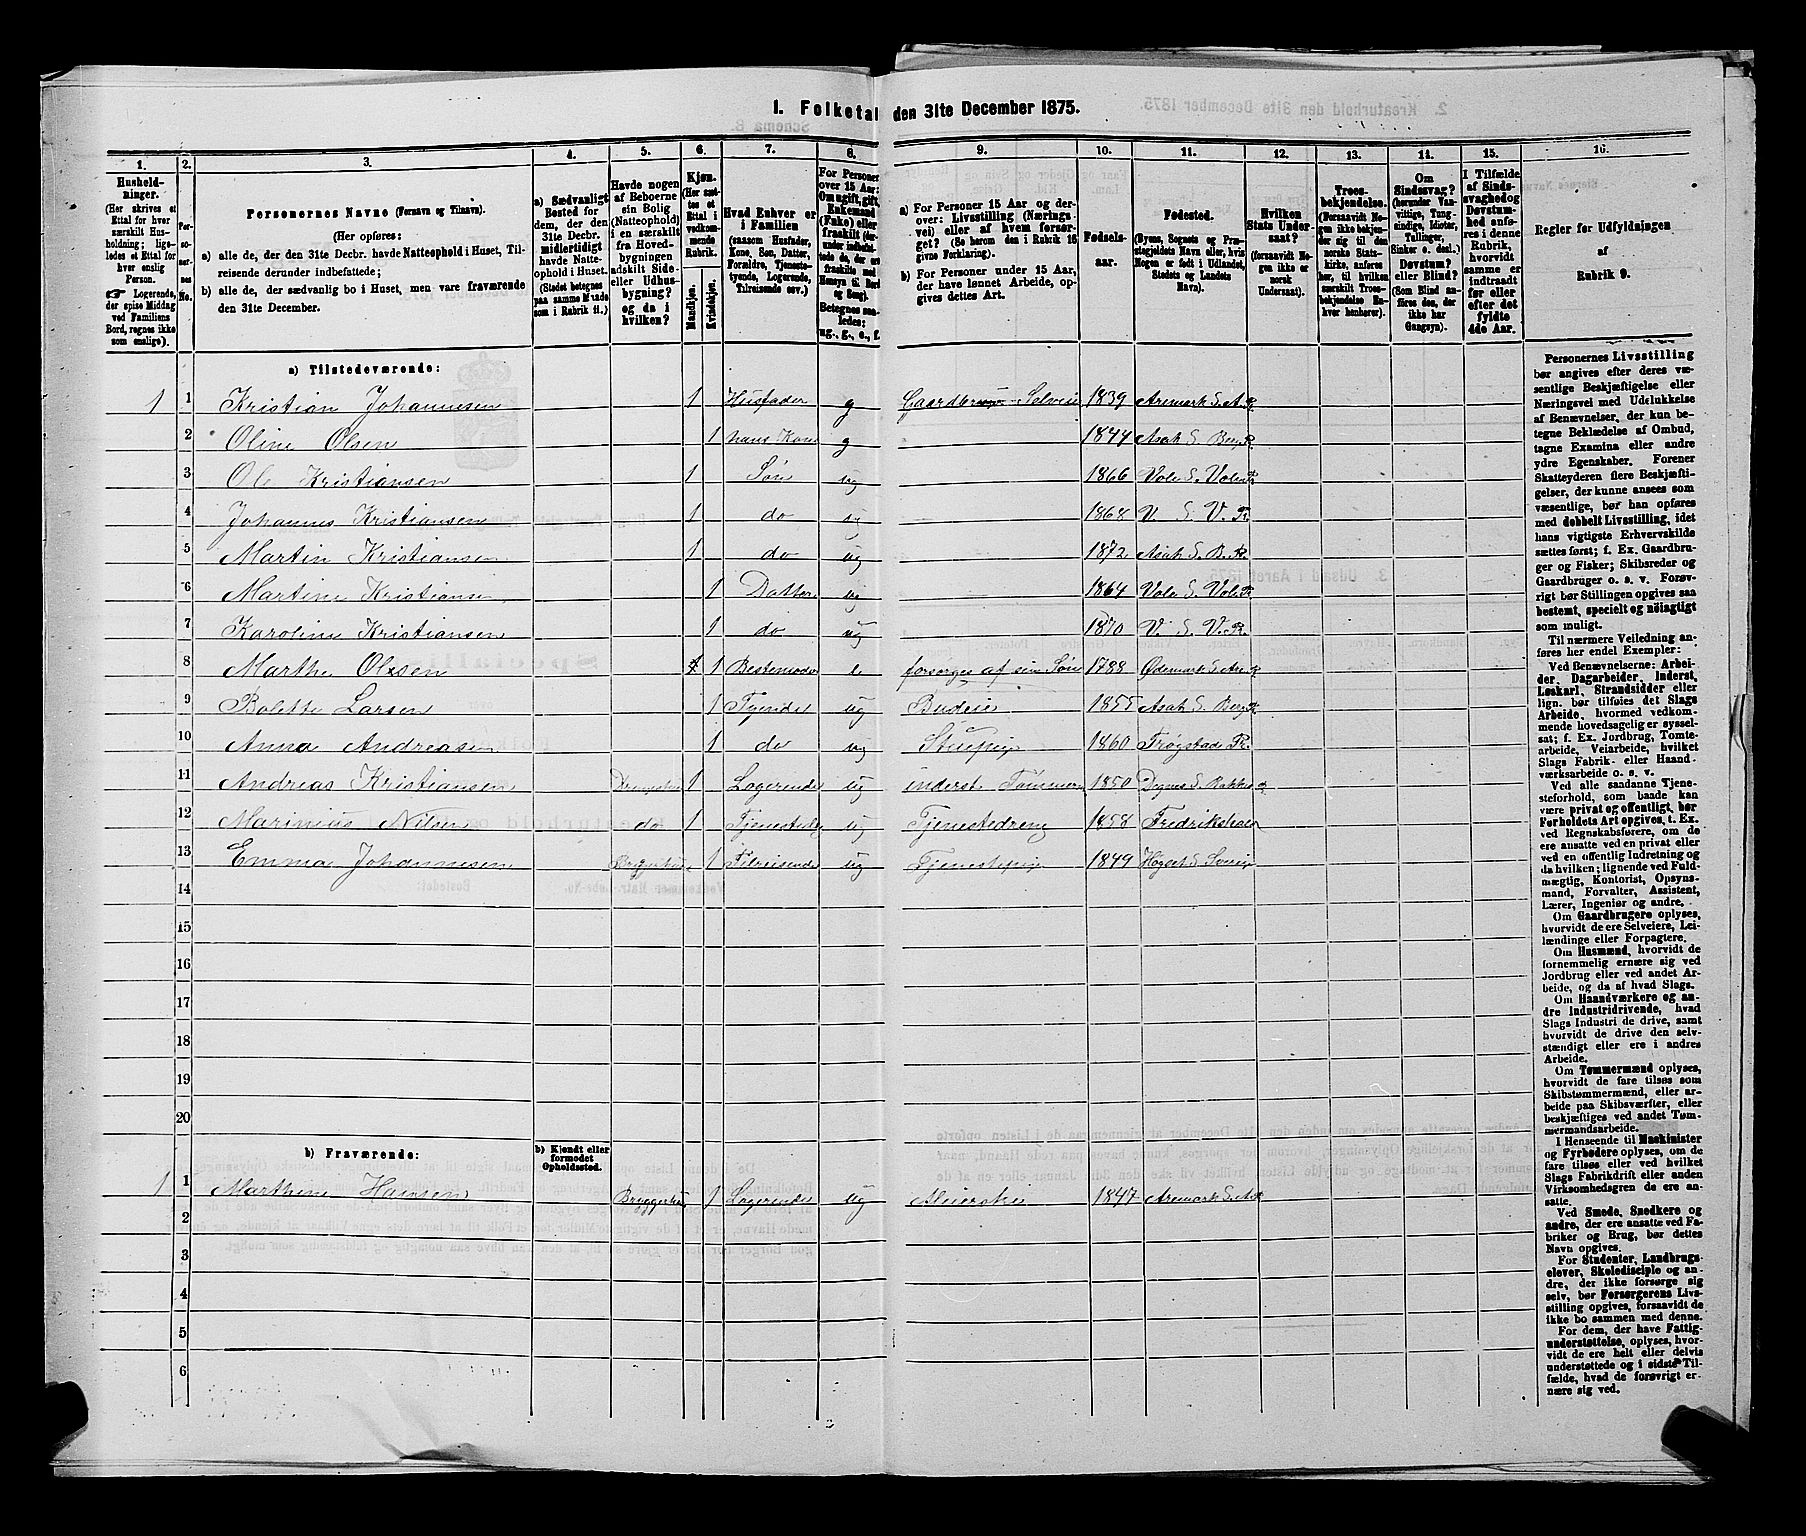 1. Folketal den 31te December 1875.
1. 2. 3. 4. 5. 6. 7. 8. 9. 10. 11. 12. 13. 14. 15. 16.
Hushold-
ninger.
(Her skrives et
Ettal for hver
særskilt Hus-
holdning; lige-
ledes et Ettal for
hver enslig
Person.
☞ Logerende,
der spise Middag
ved Familiens
Bord, regnes ikke
som enslige).
Per-
so-
ner-
nes
No.
Personernes Navne (Fornavn og Tilnavn).
(Her opføres:
a) alle de, der den 31te Decbr. havde Natteophold i Huset, Til-
reisende derunder indbefattede;
b) alle de, der sædvanlig bo i Huset, men vare fraværende
den 31te December.
a) Sædvanligt
Bosted for
dem, der den
31te Decbr.
midlertidigt
havde Natte-
ophold i Huset.
(Stedet betegnes
paa samme Maade
som i Rubrik 11.)
Havde nogen
af Beboerne
sin Bolig
(Natteophold)
i en særskilt
fra Hoved-
bygningen
adskilt Side-
eller Udhus-
bygning?
og da i
hvilken?
Kjøn.
(Her sæt-
tes et
Ettal i
vedkom-
mende
Rubrik.
Mandkjøn.
Kvindekjøn.
Hvad Enhver er
i Familien
(saasom Husfader,
Kone, Søn, Datter,
Forældre, Tjeneste-
tyende, Logerende,
Tilreisende osv.)
For Personer
over 15 Aar:
Om ugift, gift,
Enkemand
(Enke) eller
fraskilt
Betegnes saa-
ledes:
ug., g., e., f.
a) For Personer 15 Aar og der-
over: Livsstilling (Nærings-
vei) eller af hvem forsør-
get? (Se herom den i Rubrik 16
givne Forklaring).
b) For Personer under 15 Aar,
der have lønnet Arbeide, op-
gives dettes Art.
Fødsels-
aar.
Fødested.
(Byens, Sognets og Præ-
stegjeldets Navn eller, hvis
Nogen er født i Udlandet,
Stedets og Landets
Navn).
Hvilken
Stats Under-
saat?
(forsaavidt No-
gen ikke er
norsk
Undersaat).
Troes-
bekjendelse.
(Forsaavidt No-
gen ikke bekjen-
der sig til den
norske Stats-
kirke, anføres
her, til hvilken
særskilt Troes-
bekjendelse En-
hver henhører).
Om
Sindssvag?
(herunder Van-
vittige, Tung-
sindige, Idioter,
Tullinger,
Sinker o. desl.)
Døvstum?
eller Blind?
(Som Blind an-
føres den, der
ikke har
Gangsyn).
I Tilfælde
af Sinds-
svaghed og
Døvstum-
hed anfø-
res i denne
Rubrik,
hvorvidt
samme er
indtraadt
før eller
efter det
fyldte
4de Aar.
Regler for Udfyldningen
af
Rubrik 9.
a) Tilstedeværende:
1 1 Kristian Johannesen 1 Husfader g Gaardbruger Selveier 1839 Aremark S. A. P.
2 Oline Olsen 1 hans Kone g 1844 Asak S. Berg P.
3 Ole Kristiansen 1 Søn ug 1866 Vole S. Vole P.
4 Johannes Kristiansen 1 do ug 1868 V. S. V. P.
5 Martin Kristiansen 1 do ug 1872 Asak S. B. P.
6 Martine Kristiansen 1 Datter ug 1864 Vole S. Vole P.
7 Karoline Kristiansen 1 do ug 1870 V. S. V. P.
8 Marthe Olsen 1 Bestemoder e forsørges af sin Søn 1788 Ødemark S. Are P.
9 Bolette Larsen 1 Tyende ug Budeie 1855 Asak S. Berg P.
10 Anna Andreasen 1 do ug Stuepige 1860 Trøgstad P.
11 Andreas Kristiansen 1 Logerende ug inderst Tømmerm 1850 Degnes S. Rakkes P.
12 Marinius Nilsen do 1 Tjenestedg ug Tjenestedreng 1858 Fredrikshald
13 Emma Johannesen Bryggerhus 1 Tilreisende ug Tjenestepige 1849 S. Sverige
14
15
16
17
18
19
20
b) Fraværende:
b) Kjendt eller
formodet
Opholdssted.
1 1 Marthine Hansen Bryggerhus 1 Logerende ug Meierske 1847 Aremark S. A. P.
2
3
4
5
6
Personernes Livsstilling
bør angives efter deres væ-
sentlige Beskjæftigelse eller
Næringsvei med Udelukkelse
af Benævnelser, der kun be-
tegne Beklædelse af Ombud,
tagne Examina eller andre
ydre Egenskaber. Forener
Skatteyderen flere Beskjæfti-
gelser, der kunne ansees som
væsentlige, bør han opføres
med dobbelt Livsstilling, idet
hans vigtigste Erhvervskilde
sættes først; f. Ex. Gaardbru-
ger og Fisker; Skibsreder og
Gaardbruger o. s. v. Forøv-
rigt bør Stillingen opgives saa
bestemt, specielt og nøiagtigt
som muligt.
Til nærmere Veiledning an-
føres her endel Exempler:
Ved Benævnelserne: Arbei-
der, Dagarbeider, Inderst,
Løskarl, Strandsidder eller
lign. bør tilføies det Slags
Arbeide, hvormed vedkom-
mende hovedsagelig er syssel-
sat; f. Ex. Jordbrug, Tomte-
arbeide, Veiarbeide, hvilket
Slags Fabrik- eller Haand-
værksarbeide o. s. v.
Ved alle saadanne Tjene-
steforhold, som baade kan
være privat og offentligt, bør
Forholdets Art opgives, t. Ex.
ved Regnskabsførere, om de
ere ansatte ved en privat eller
ved en offentlig Indretning og
da hvilken; lignende ved Fuld-
mægtig, Kontorist, Opsyns-
mand, Forvalter, Assistent,
Lærer, Ingeniør og andre.
Om Gaardbrugere oplyses,
hvorvidt de ere Selveiere, Lei-
lændinge eller Forpagtere.
Om Husmænd, hvorvidt de
fornemmelig ernære sig ved
Jordbrug eller ved andet Ar-
beide, og da af hvad Slags.
Om Haandværkere og an-
dre Industridrivende, hvad
Slags Industri de drive, samt
hvorvidt de drive den selv-
stændigt eller ere i andres
Arbeide.
Om Tømmermænd oplyses,
hvorvidt de fare tilsøs som
Skibstømmermænd, eller ar-
beide paa Skibsværfter, eller
beskjæftiges ved andet Tøm-
mermandsarbeide.
I Henseende til Maskinister
og Fyrbødere oplyses, om de
fare tilsøs eller ved hvilket
Slags Fabrikdrift eller anden
Virksomhedsgren de ere an-
satte.
Ved Smede, Snedkere og
andre, der ere ansatte ved Fa-
briker og Brug, bør dettes
Navn opgives.
For Studenter, Landbrugs-
elever, Skoledisciple og an-
dre, der ikke forsørge sig
selv, bør Forsørgerens Livs-
stilling opgives, forsaavidt de
ikke bo sammen med denne.
For dem, der have Fattig-
understøttelse, oplyses, hvor-
vidt de ere helt eller delvis
understøttede og i sidste Til-
fælde, hvad de forøvrigt er-
nære sig ved.